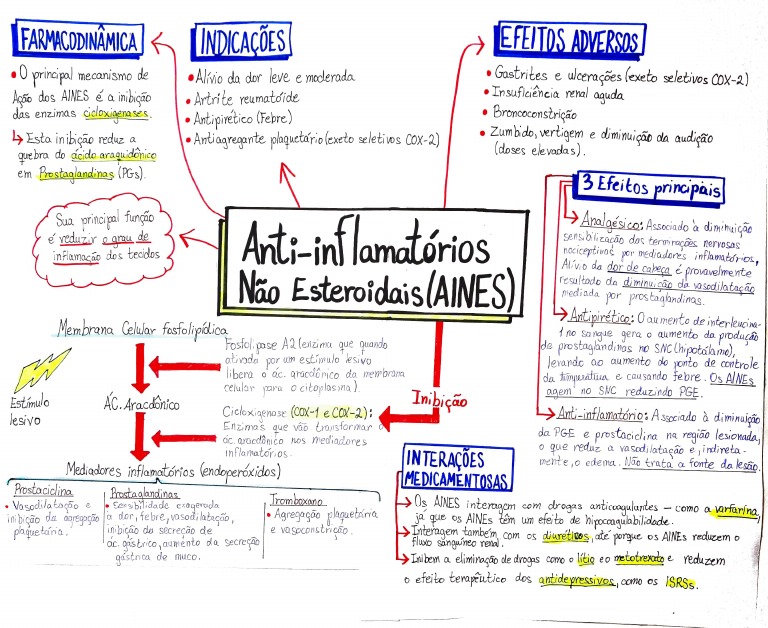 FARMACODINÂMICA
• O principal mecanismo de
Ação dos AINES é a inibição
das enzimas cicloxigenases.
↳ Esta inibição reduz a
quebra do ácido araquidônico
em Prostaglandinas (PGs).
INDICAÇÕES
• Alívio da dor leve e moderada
• Artrite reumatóide
• Antipirético (Febre)
• Antiagregante plaquetário (exeto seletivos COX-2)
EFEITOS ADVERSOS
• Gastrites e ulcerações (exeto seletivos COX-2)
• Insuficiência renal aguda
• Broncoconstrição
• Zumbido, vertigem e diminuição da audição
(doses elevadas).
Sua principal função
é reduzir o grau de
inflamação dos tecidos
Anti-inflamatórios
Não Esteroidais (AINES)
3 Efeitos principais
Analgésico: Associado à diminuição
sensibilização dos terminações nervosas
nociceptivas por mediadores inflamatórios,
Alívio da dor de cabeça é provavelmente
resultado da diminuição da vasodilatação
mediada por prostaglandinas.
Antipirético: O aumento de interleucina-
1 no sangue gera o aumento da produção
de prostaglandinas no SNC (hipotálamo),
levando ao aumento do ponto de controle
da temperatura e causando febre. Os AINEs
agem no SNC reduzindo PGE.
Anti-inflamatório: Associado à diminuição
da PGE e prostaciclina na região lesionada,
o que reduz a vasodilatação e, indireta-
mente, o edema. Não trata a fonte da lesão.
Membrana Celular fosfolipídica
Fosfolipase A2 (enzima que quando
ativada por um estímulo lesivo
libera o ác. aracdônico da membrana
celular para o citoplasma).
Estímulo
lesivo
ÁC. Aracdônico
Cicloxigenase (COX-1 e COX-2):
Enzimas que vão transformar o
ác. aracdônico nos mediadores
inflamatórios.
Inibição
Mediadores inflamatórios (endoperóxidos)
Prostaciclina
• Vasodilatação e
inibição da agregação
plaquetária.
Prostaglandinas
• Sensibilidade exagerada
a dor, febre, vasodilatação,
inibição da secreção de
ác. gástrico, aumento da secreção
gástrica de muco.
Tromboxano
• Agregação plaquetária
e vasoconstrição.
INTERAÇÕES
MEDICAMENTOSAS
Os AINES interagem com drogas anticoagulantes – como a varfarina,
já que os AINEs têm um efeito de hipocoagulabilidade.
Interagem também com os diuréticos, até porque os AINES reduzem o
fluxo sanguíneo renal.
Inibem a eliminação de drogas como o lítio e o metotrexato e reduzem
o efeito terapêutico dos antidepressivos, como os ISRSs.